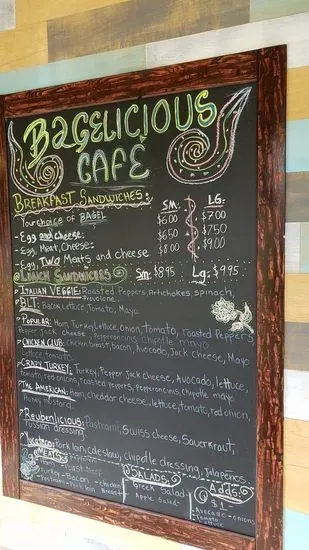 BAGELICIOUS
CAFÉ
BREAKFAST SANDWICHES: SM: LG:
Your choice of BAGEL $6.00 $7.00
- Egg and cheese: $6.50 $7.50
- Egg, Meat, Cheese: $8.00 $9.00
- Egg, Two Meats and cheese
LUNCH SANDWICHES Sm: $8.95 Lg: $9.95
ITALIAN VEGGIE: Roasted Peppers, Artichokes, spinach,
Provolone
BLT: Bacon, Lettuce, Tomato, Mayo
POPULAR: Ham, Turkey, Lettuce, onion, Tomato, Roasted Peppers
Pepper Jack cheese, Pepperoncinis, Chipotle mayo
CHICKEN CLUB: Chicken breast, bacon, Avocado, Jack Cheese, Mayo
Lettuce, tomato
CRAZY TURKEY: Turkey, Pepper Jack cheese, Avocado, lettuce,
Tomato, red onions, roasted peppers, pepperoncinis, chipotle mayo
THE AMERICAN: Ham, cheddar cheese, lettuce, tomato, red onion,
Honey mustard.
REUBENLICIOUS: Pastrami, Swiss cheese, Sauerkraut,
Russian dressing.
Pork loin, coleslaw, chipotle dressing, Jalapeños.
MEATS:
Ham
Turkey - Bacon
Pastrami - Pork loin
chicken
Breast
SALADS
Greek Salad
Apple Salad
Adds
$1
Avocado - onions
Tomato
Lettuce